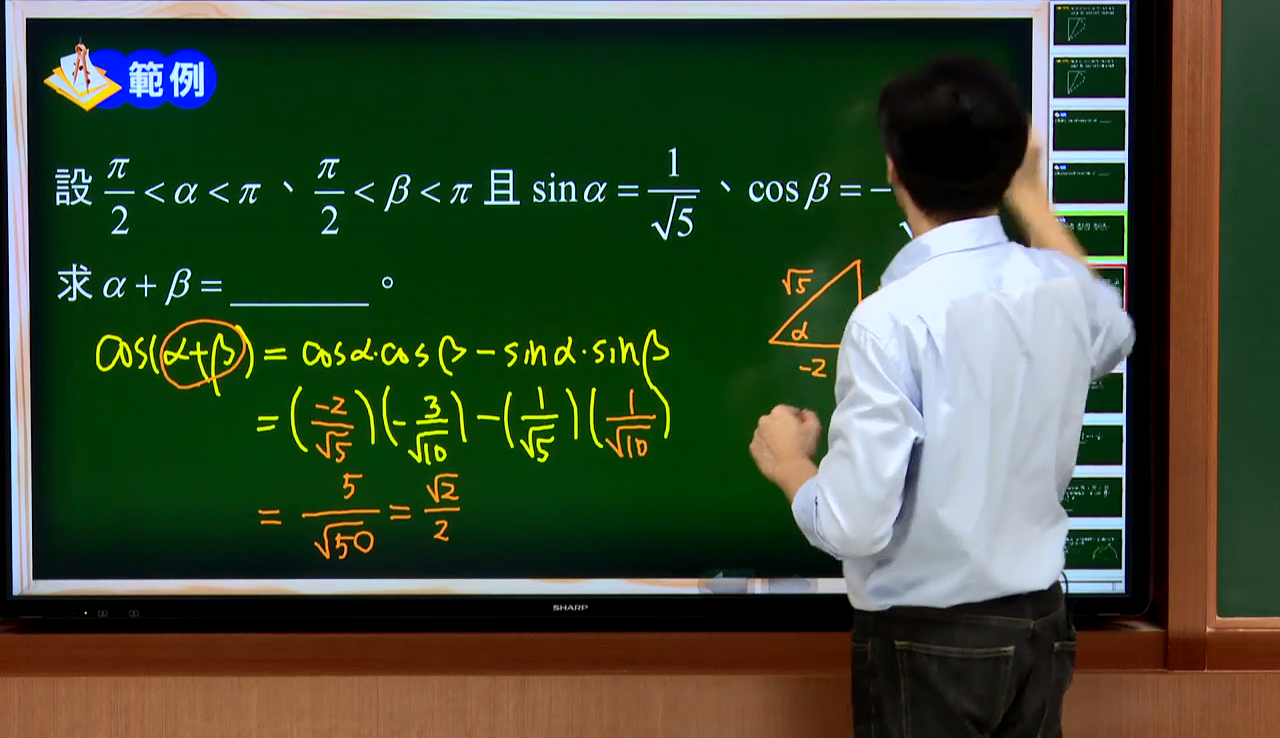 範例
設 π/2 < α < π 、 π/2 < β < π 且 sin α = 1/√5 、 cos β = −
求 α + β = ________ 。
√5
α
-2
cos(α+β) = cosα·cosβ − sinα·sinβ
= (-2/√5)(-3/√10) − (1/√5)(1/√10)
= 5/√50 = √2/2
SHARP